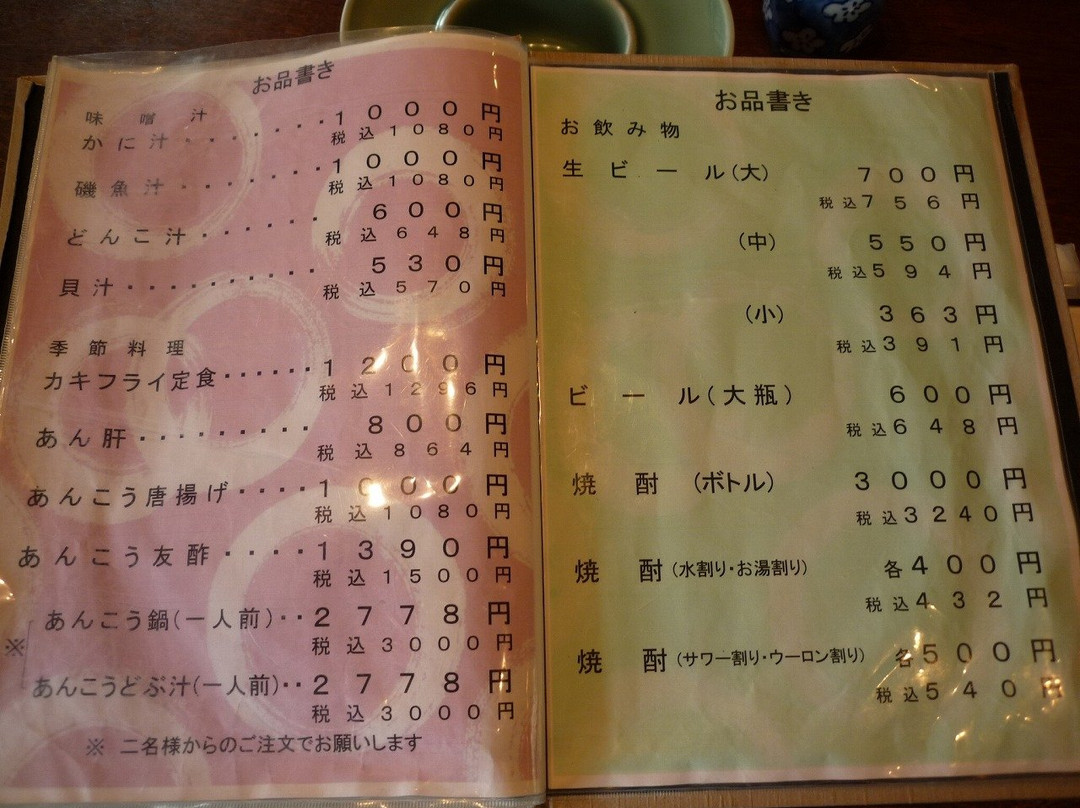 お品書き
味噌汁
かに汁・・・・・・・・1000円
税込1080円
磯魚汁・・・・・・・・1000円
税込1080円
どんこ汁・・・・・・・600円
税込648円
貝汁・・・・・・・・・・530円
税込570円
季節料理
カキフライ定食・・・・・・1200円
税込1296円
あん肝・・・・・・・・・・800円
税込864円
あんこう唐揚げ・・・・1000円
税込1080円
あんこう友酢・・・・1390円
税込1500円
※ あんこう鍋(一人前)・・2778円
税込3000円
あんこうどぶ汁(一人前)・・2778円
税込3000円
※ 二名様からのご注文でお願いします
お品書き
お飲み物
生ビール(大) 700円
税込756円
(中) 550円
税込594円
(小) 363円
税込391円
ビール(大瓶) 600円
税込648円
焼酎 (ボトル) 3000円
税込3240円
焼酎(水割り・お湯割り) 各400円
税込432円
焼酎(サワー割り・ウーロン割り) 各500円
税込540円